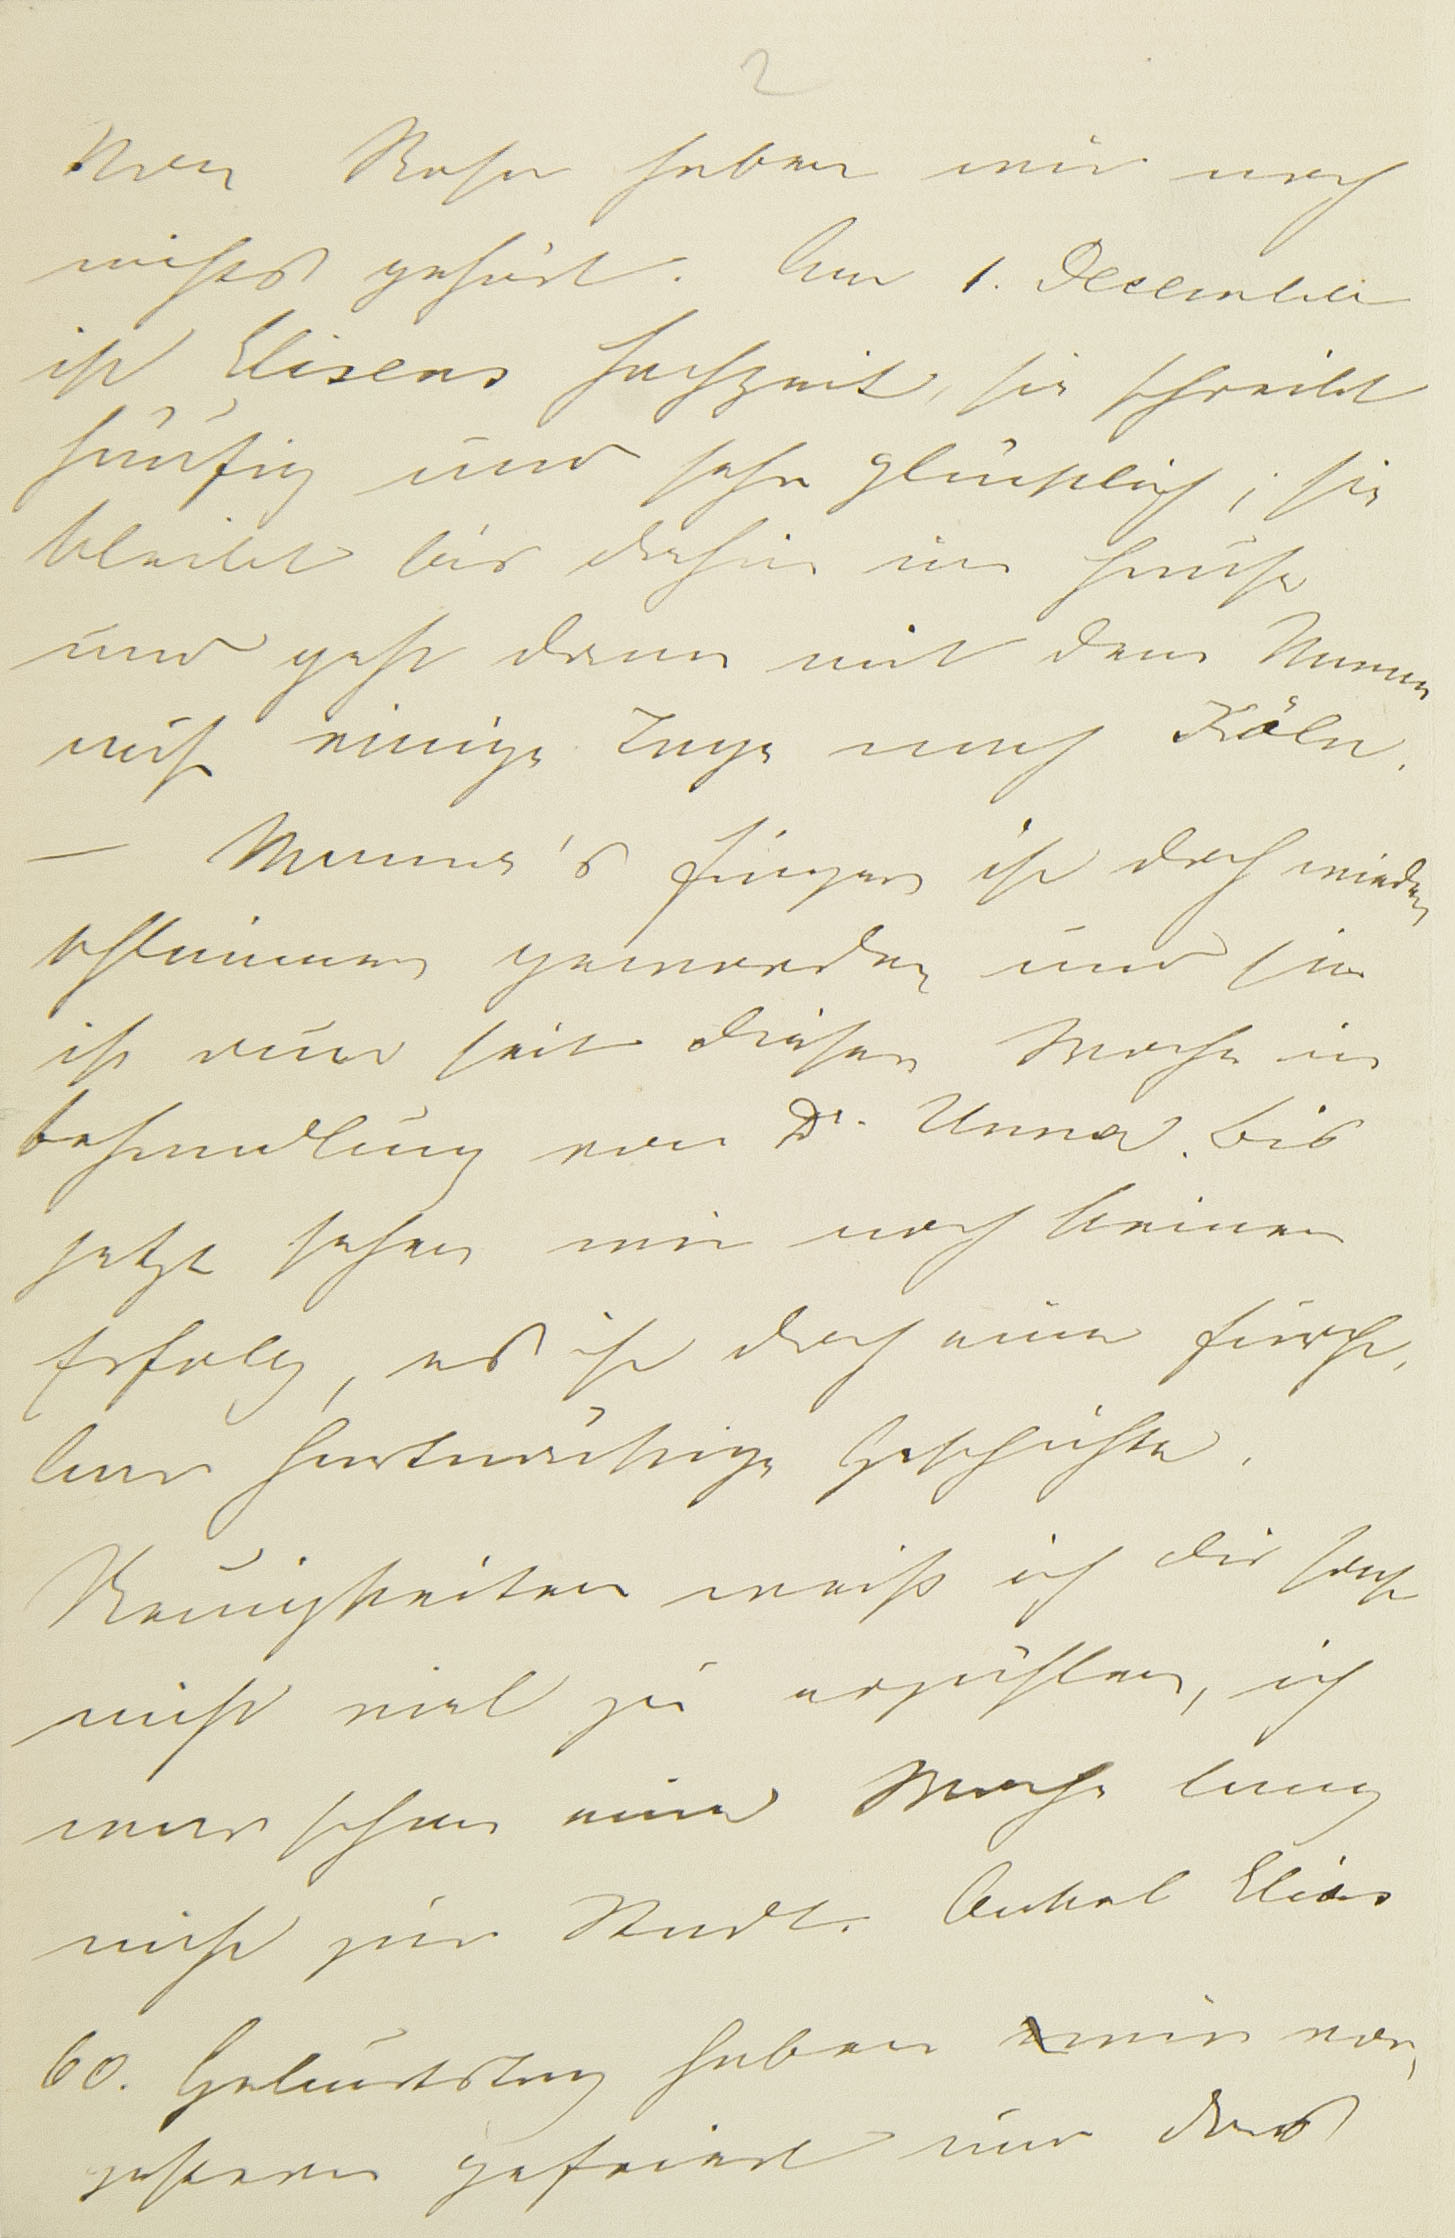 2
Von Rosa haben wir noch
nichts gehört. Am 1. December
ist Elisens Hochzeit, sie schreibt
häufig und sehr glücklich; sie
bleibt bis dahin im Hause
und geht dann mit dem Manne
auf einige Tage nach Köln.
— Mama's Finger ist doch wieder
schlimmer geworden und sie
ist nun seit dieser Woche in
Behandlung von Dr. Unna. Bis
jetzt sehen wir noch keinen
Erfolg, es ist doch eine furcht-
bar hartnäckige Geschichte.
Neuigkeiten weiß ich Dir sonst
nicht viel zu erzählen, ich
war schon eine Woche lang
nicht zur Stadt. Onkel Elias
60. Geburtstag haben wir vor-
gestern gefeiert nur das